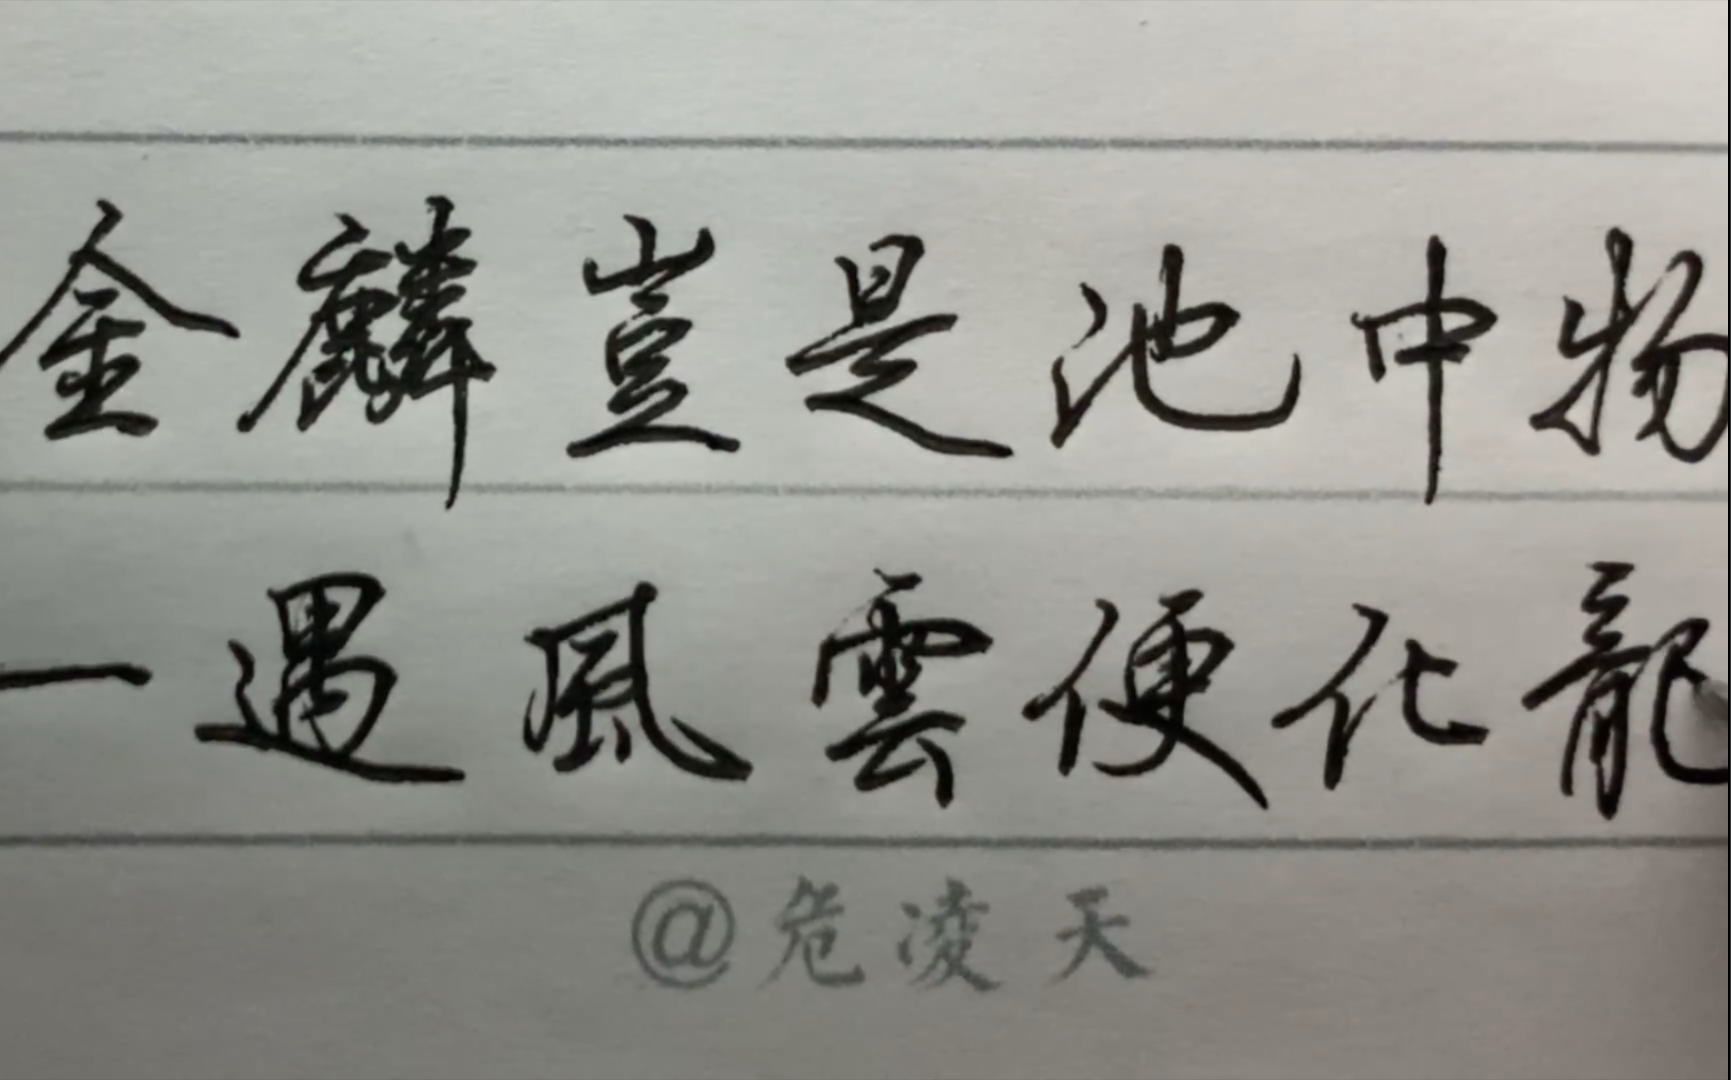 金麟豈是池中物
一遇風雲便化龍
@危凌天